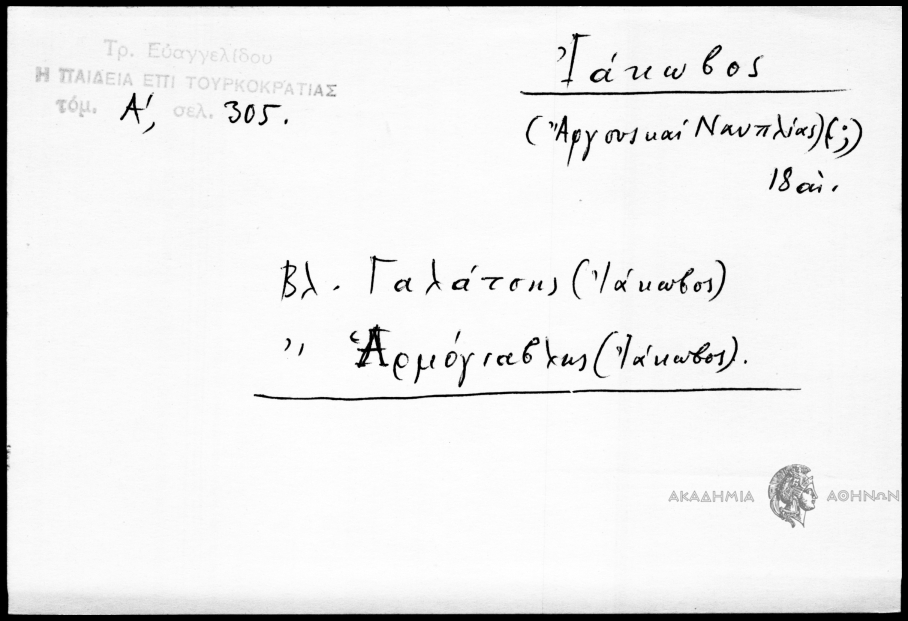 Τρ. Εὐαγγελίδου
Η ΠΑΙΔΕΙΑ ΕΠΙ ΤΟΥΡΚΟΚΡΑΤΙΑΣ
τόμ. Α', σελ. 305.
Ἰάκωβος
(Ἄργους καί Ναυπλίας)(;)
18 αἰ.
Βλ. Γαλάτσης (Ἰάκωβος)
,, Ἁρμόγιαβλης (Ἰάκωβος).
ΑΚΑΔΗΜΙΑ ΑΘΗΝΩΝ